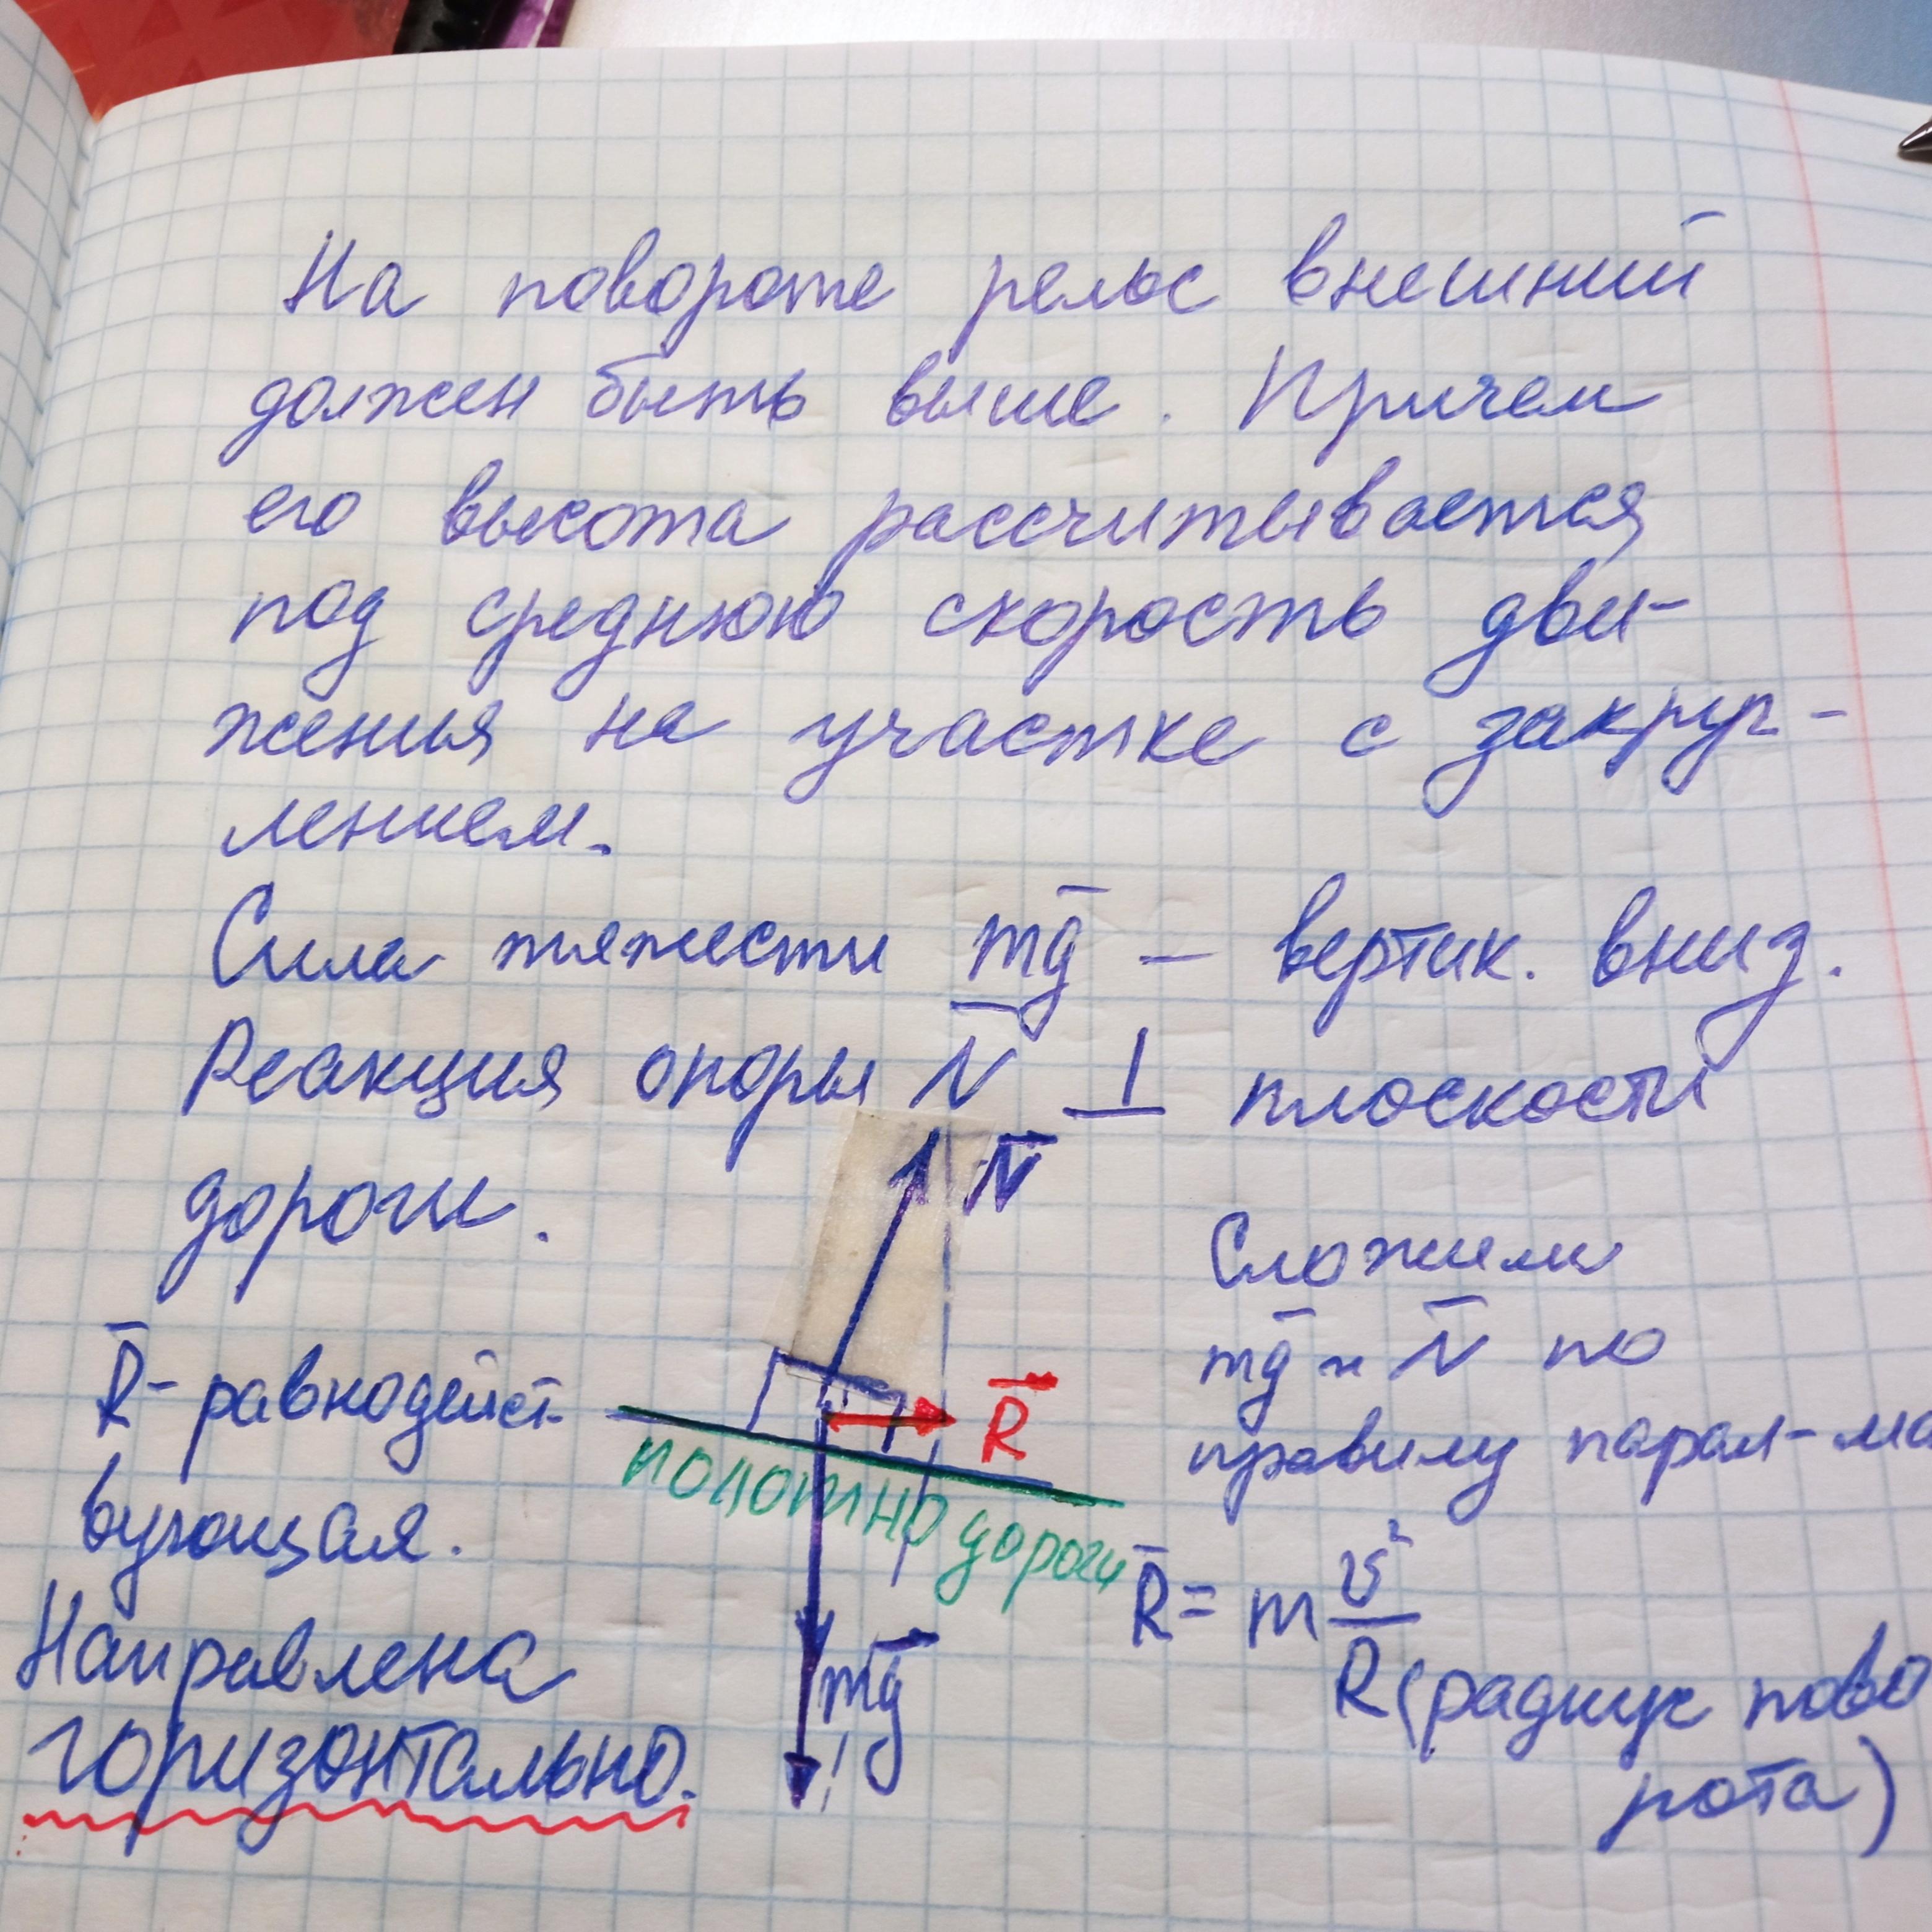 На повороте рельс внешний
должен быть выше. Причем
его высота рассчитывается
под среднюю скорость дви-
жения на участке с закруг-
лением.
Сила тяжести mg – вертик. вниз.
Реакция опоры N ⊥ плоскости
дороги.
N
Сложим
mg и N по
правилу парал-ма
R - равнодейст-
вующая.
Направлена
горизонтально.
R
полотно дороги
mg
R = m v²/R (радиус пово
рота)